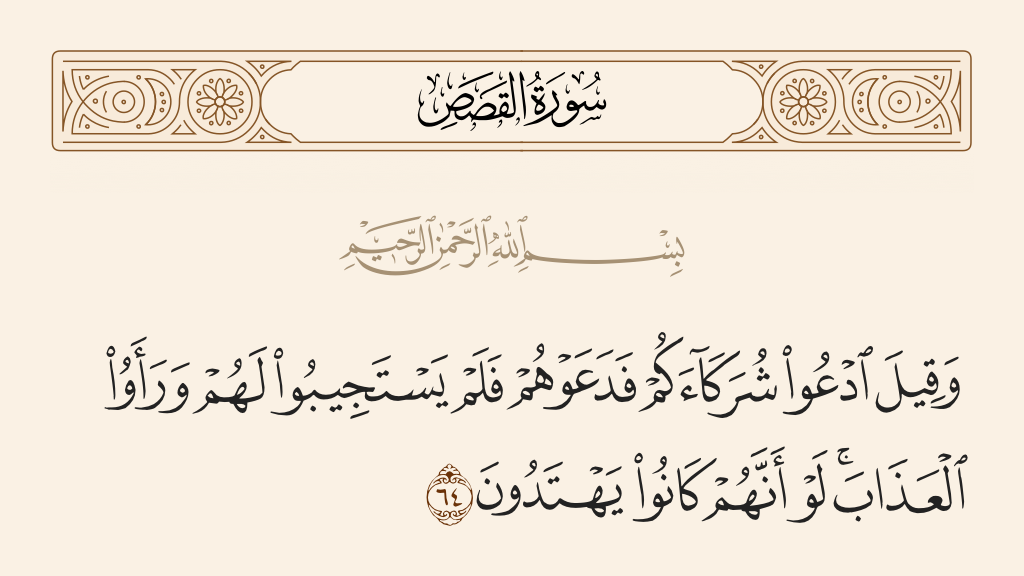 سُورَةُ القَصَصِ
بِسْمِ ٱللَّهِ ٱلرَّحْمَٰنِ ٱلرَّحِيمِ
وَقِيلَ ٱدْعُوا۟ شُرَكَآءَكُمْ فَدَعَوْهُمْ فَلَمْ يَسْتَجِيبُوا۟ لَهُمْ وَرَأَوُا۟
ٱلْعَذَابَ ۚ لَوْ أَنَّهُمْ كَانُوا۟ يَهْتَدُونَ ٦٤